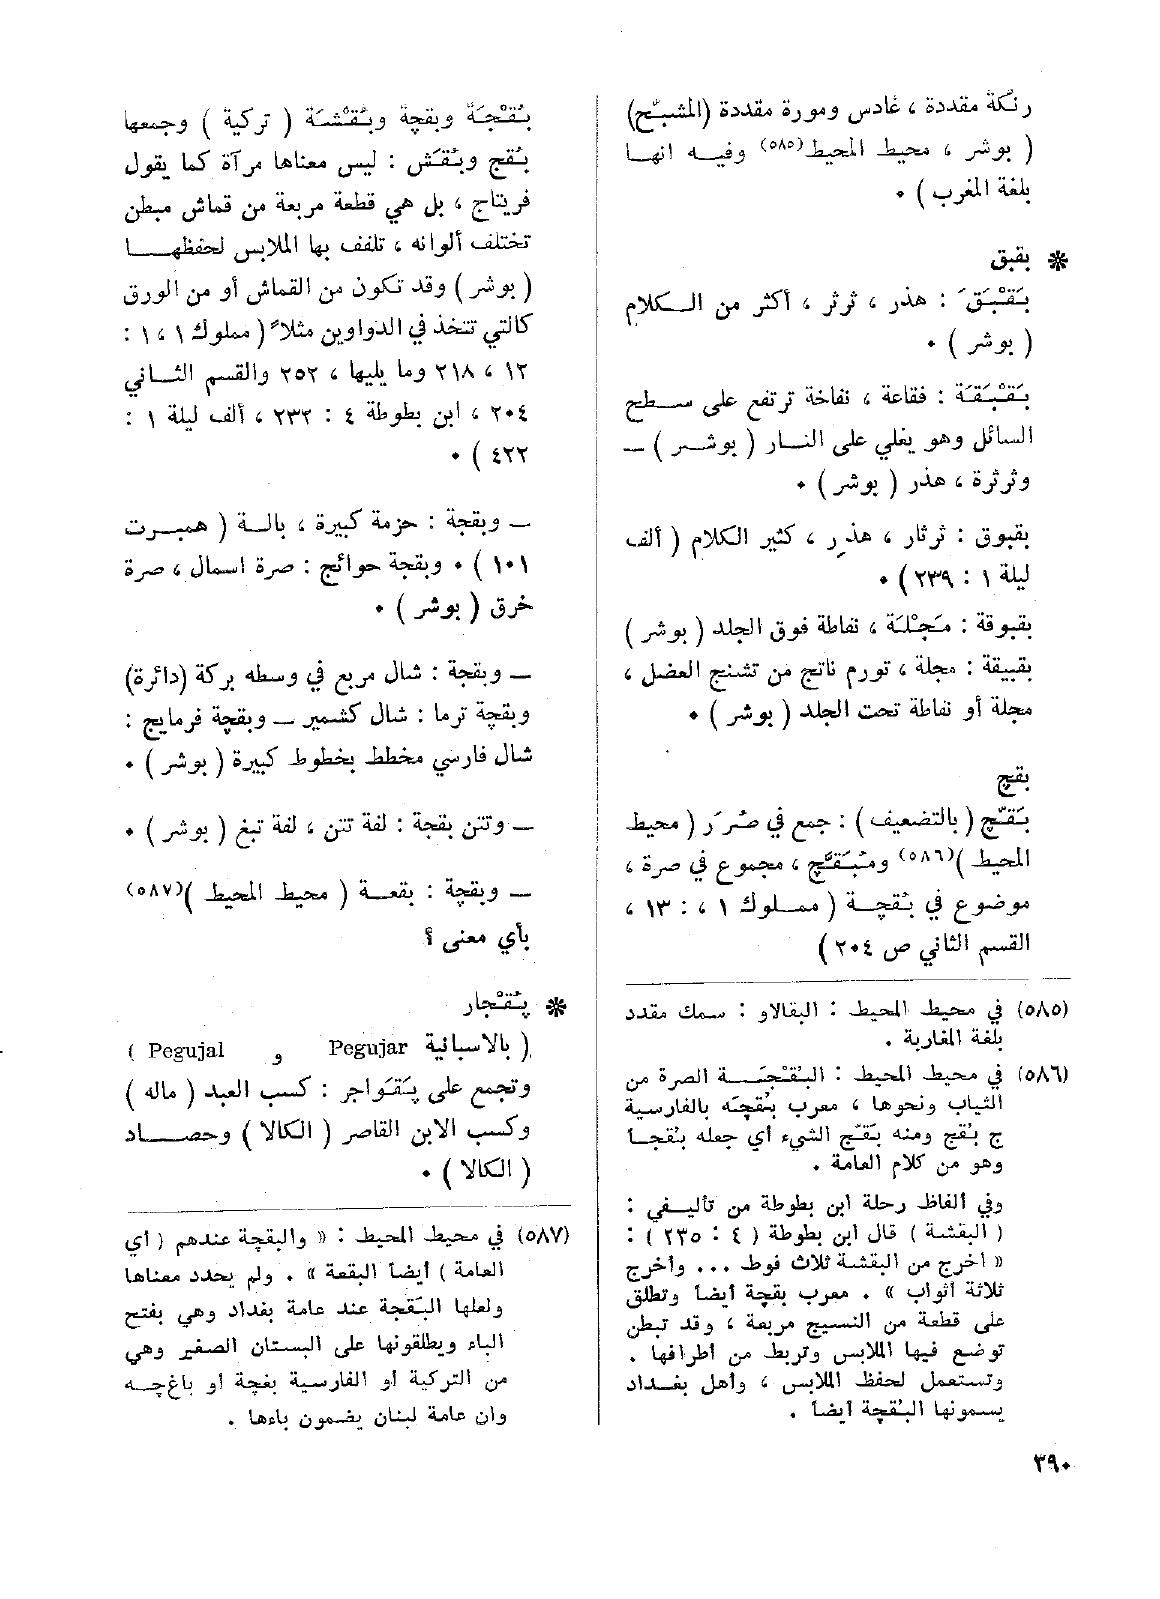 رنكة مقددة ، غادس ومورة مقددة (المشبّح)
( بوشر ، محيط المحيط(٥٨٥) وفيه انها
بلغة المغرب ) ٠
❋ بقبق
بَقْبَقَ : هذر ، ثرثر ، أكثر من الكلام
( بوشر ) ٠
بَقْبَقَة : فقاعة ، نفاخة ترتفع على سطح
السائل وهو يغلي على النار ( بوشر ) —
وثرثرة ، هذر ( بوشر ) ٠
بقبوق : ثرثار ، هذِر ، كثير الكلام ( ألف
ليلة ١ : ٢٣٩ ) ٠
بقبوقة : مَجْلَة ، نفاطة فوق الجلد ( بوشر )
بقبيقة : مجلة ، تورم ناتج من تشنج العضل ،
مجلة أو نفاطة تحت الجلد ( بوشر ) ٠
بقچ
بَقَّچ ( بالتضعيف ) : جمع في صُرَر ( محيط
المحيط )(٥٨٦) ومُبَقَّچ ، مجموع في صرة ،
موضوع في بُقجة ( مملوك ١ ، ١ : ١٣ ،
القسم الثاني ص ٢٠٤ )
(٥٨٥) في محيط المحيط : البقالاو : سمك مقدد
بلغة المغاربة .
(٥٨٦) في محيط المحيط : البُقْجَة الصرة من
الثياب ونحوها ، معرب بُقچَه بالفارسية
ج بُقج ومنه بَقّج الشيء أي جعله بُقجاً
وهو من كلام العامة .
وفي الفاظ رحلة ابن بطوطة من تأليفي :
( البقشة ) قال ابن بطوطة ( ٤ : ٢٣٥ ) :
« اخرج من البقشة ثلاث فوط ... وأخرج
ثلاثة أثواب » . معرب بقچة أيضاً وتطلق
على قطعة من النسيج مربعة ، وقد تبطن
توضع فيها الملابس وتربط من أطرافها .
وتستعمل لحفظ الملابس ، وأهل بغداد
يسمونها البُقچة أيضاً .
بُقْجَة وبقچة وبُقْشَة ( تركية ) وجمعها
بُقج وبُقَش : ليس معناها مرآة كما يقول
فريتاج ، بل هي قطعة مربعة من قماش مبطن
تختلف ألوانه ، تلفف بها الملابس لحفظها
( بوشر ) وقد تكون من القماش أو من الورق
كالتي تتخذ في الدواوين مثلاً ( مملوك ١ ، ١ :
١٢ ، ٢١٨ وما يليها ، ٢٥٢ والقسم الثاني
٢٠٤ ، ابن بطوطة ٤ : ٢٣٢ ، ألف ليلة ١ :
٤٢٢ ) ٠
— وبقجة : حزمة كبيرة ، بالة ( همبرت
١٠١ ) ٠ وبقجة حوائج : صرة اسمال ، صرة
خرق ( بوشر ) ٠
— وبقجة : شال مربع في وسطه بركة (دائرة)
وبقچة ترما : شال كشمير — وبقچة فرمايج :
شال فارسي مخطط بخطوط كبيرة ( بوشر ) ٠
— وتتن بقجة : لفة تتن ، لفة تبغ ( بوشر ) ٠
— وبقچة : بقعة ( محيط المحيط )(٥٨٧)
بأي معنى ؟
❋ پُقُجار
( بالاسبانية Pegujar و Pegujal )
وتجمع على پَقَواجر : كسب العبد ( ماله )
وكسب الابن القاصر ( الكالا ) وحصاد
( الكالا ) ٠
(٥٨٧) في محيط المحيط : « والبقچة عندهم ( أي
العامة ) أيضاً البقعة » . ولم يحدد معناها
ولعلها البَقجة عند عامة بغداد وهي بفتح
الباء ويطلقونها على البستان الصغير وهي
من التركية أو الفارسية بغچة أو باغچه
وان عامة لبنان يضمون باءها .
٣٩٠